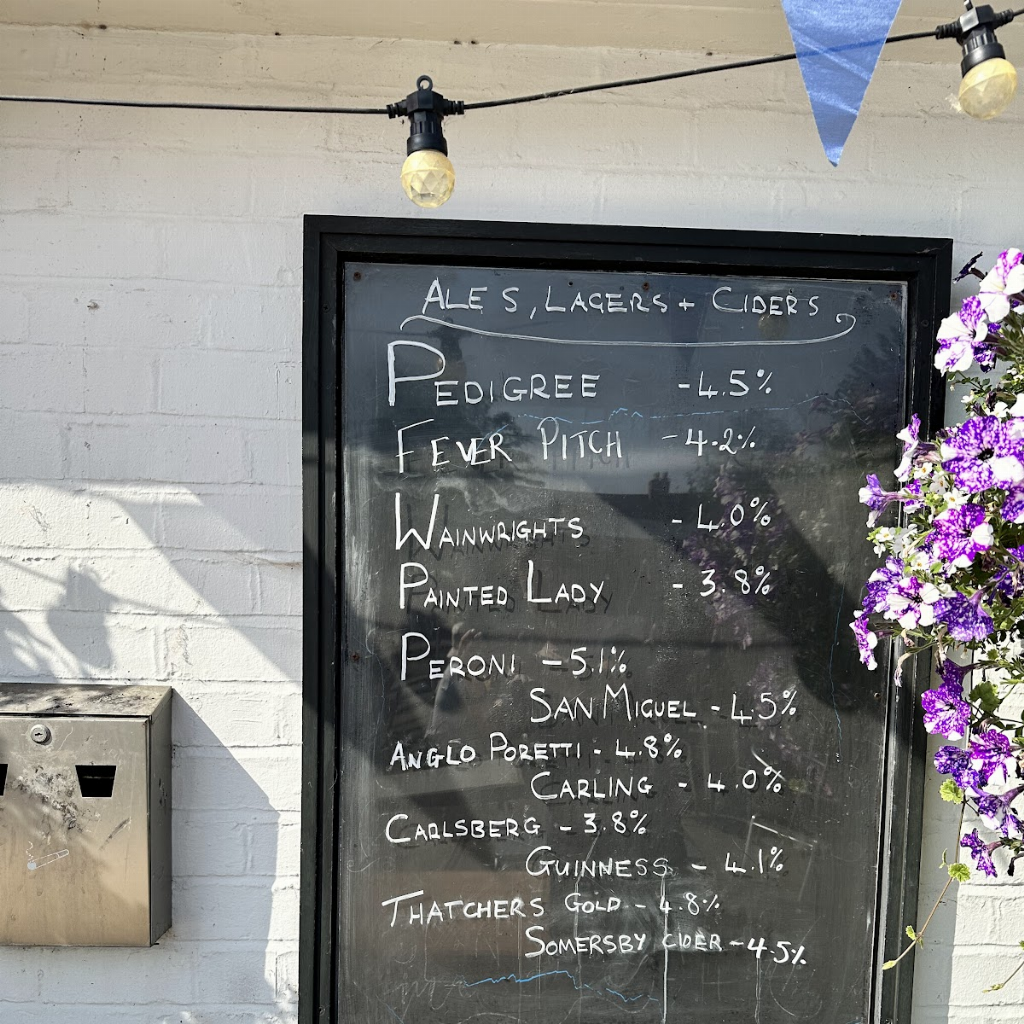 ALES, LAGERS + CIDERS
PEDIGREE - 4.5%
FEVER PITCH - 4.2%
WAINWRIGHTS - 4.0%
PAINTED LADY - 3.8%
PERONI - 5.1%
SAN MIGUEL - 4.5%
ANGLO PORETTI - 4.8%
CARLING - 4.0%
CARLSBERG - 3.8%
GUINNESS - 4.1%
THATCHERS GOLD - 4.8%
SOMERSBY CIDER - 4.5%